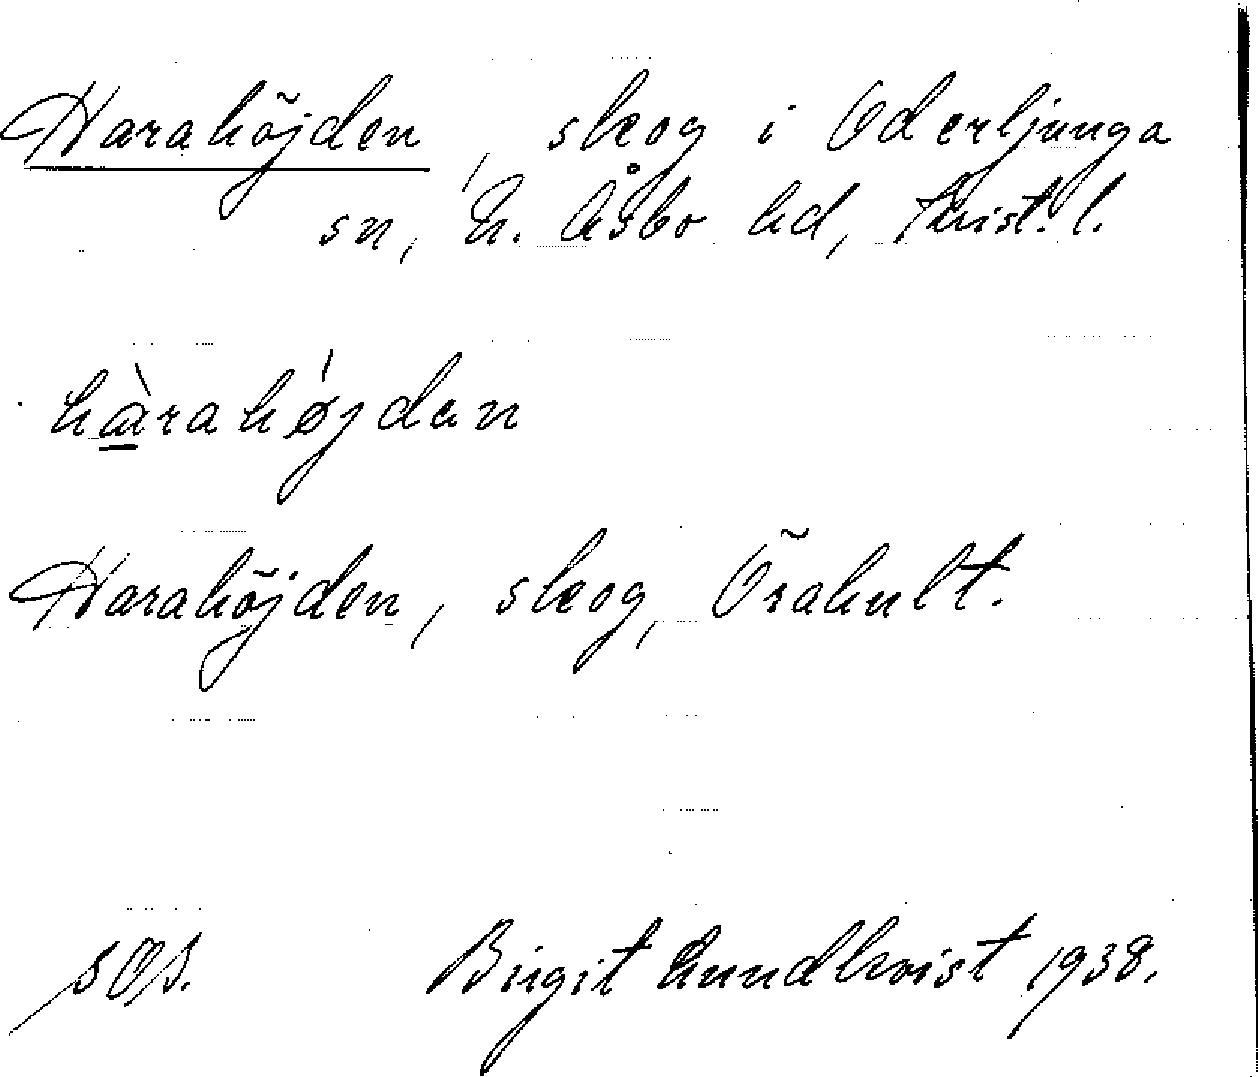 Harahöjden, skog i Oderljunga
sn, N. Åsbo hd, Krist. l.
hàrahǿjdan
Harahöjden, skog, Örahult.
Birgit Lundkvist 1938.